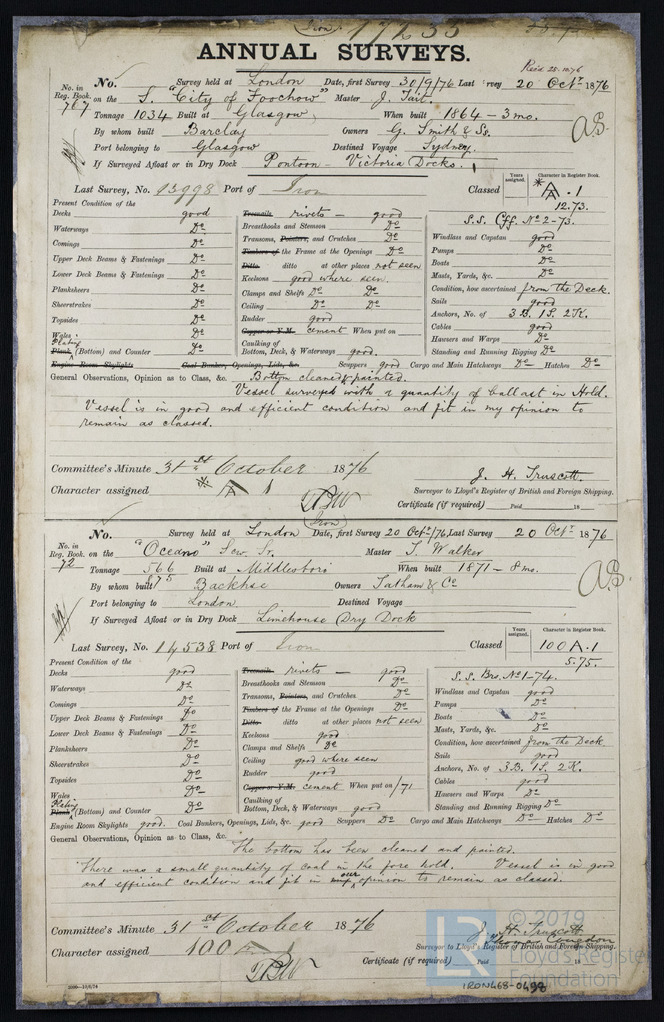 Iron
ANNUAL SURVEYS.
Rec'd 25.10.76
No. Survey held at London Date, first Survey 30/9/76 Last Survey 20 Octr 1876
No. in Reg. Book. 767 on the S. "City of Foochow" Master J. Tait.
Tonnage 1034 Built at Glasgow When built 1864 - 3 mo.
By whom built Barclay Owners G. Smith & Ss.
Port belonging to Glasgow Destined Voyage Sydney.
If Surveyed Afloat or in Dry Dock Pontoon - Victoria Docks.
Years assigned. Character in Register Book.
Last Survey, No. 13998 Port of Iron Classed A .1
12.73.
Present Condition of the
S.S. Cff. No 2-73.
Decks good Treenails rivets - good
Waterways Do Breasthooks and Stemson Do Windlass and Capstan good
Comings Do Transoms, Pointers, and Crutches Do Pumps Do
Upper Deck Beams & Fastenings Do Timbers of the Frame at the Openings Do Boats Do
Lower Deck Beams & Fastenings Do Ditto ditto at other places not seen Masts, Yards, &c. Do
Planksheers Do Keelsons good where seen. Condition, how ascertained from the Deck.
Sheerstrakes Do Clamps and Shelfs Do Do Sails good
Topsides Do Ceiling Do Do Anchors, No. of 3 B. 1 S. 2 K.
Wales Do Rudder good Cables good
Plating Plank (Bottom) and Counter Do Copper or Y.M. cement When put on Hawsers and Warps Do
Caulking of Bottom, Deck, & Waterways good. Standing and Running Rigging Do
Engine Room Skylights Coal Bunker, Openings, Lids, &c. Scuppers good Cargo and Main Hatchways Do Hatches Do
General Observations, Opinion as to Class, &c. Bottom cleaned & painted.
Vessel surveyed with a quantity of ballast in Hold.
Vessel is in good and efficient condition and fit in my opinion to
remain as classed.
Committee's Minute 31st October 1876
J. H. Truscott
Character assigned A 1
Surveyor to Lloyd's Register of British and Foreign Shipping.
Certificate (if required) Paid 18
Iron
No. Survey held at London Date, first Survey 20 Octr/76, Last Survey 20 Octr 1876
No. in Reg. Book. 72 on the "Oceano" Scw. Sr. Master T. Walker
Tonnage 566 Built at Middlesboro When built 1871 - 8 mo.
875
By whom built Backhse Owners Tatham & Co
Port belonging to London Destined Voyage
If Surveyed Afloat or in Dry Dock Limehouse Dry Dock
Years assigned. Character in Register Book.
Last Survey, No. 14538 Port of Iron Classed 100 A.1
5.75.
Present Condition of the
S.S. Brs. No 1-74.
Decks good Treenails rivets - good
Waterways Do Breasthooks and Stemson Do Windlass and Capstan good
Comings Do Transoms, Pointers, and Crutches Do Pumps Do
Upper Deck Beams & Fastenings Do Timbers of the Frame at the Openings Do Boats Do
Lower Deck Beams & Fastenings Do Ditto ditto at other places not seen Masts, Yards, &c. Do
Planksheers Do Keelsons good Condition, how ascertained from the Deck
Sheerstrakes Do Clamps and Shelfs Do Sails good
Topsides Do Ceiling good where seen Anchors, No. of 3 B. 1 S. 2 K.
Wales Do Rudder good Cables good
Plating Plank (Bottom) and Counter Do Copper or Y.M. cement When put on /71 Hawsers and Warps Do
Caulking of Bottom, Deck, & Waterways good Standing and Running Rigging Do
Engine Room Skylights good. Coal Bunkers, Openings, Lids, &c. good Scuppers Do Cargo and Main Hatchways Do Hatches Do
General Observations, Opinion as to Class, &c.
The bottom has been cleaned and painted.
There was a small quantity of coal in the fore hold. Vessel is in good
and efficient condition and fit in our opinion to remain as classed.
Committee's Minute 31st October 1876
J. H. Truscott
Character assigned 100 A 1
Surveyor to Lloyd's Register of British and Foreign Shipping.
Certificate (if required) Paid 18
© 2019
Lloyd's Register
Foundation
LR
IRON468-0498